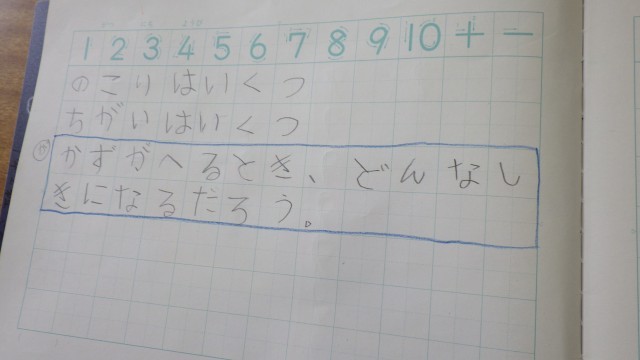 1 2 3 4 5 6 7 8 9 10 + −
のこりはいくつ
ちがいはいくつ
かずがへるとき、どんなし
きになるだろう。